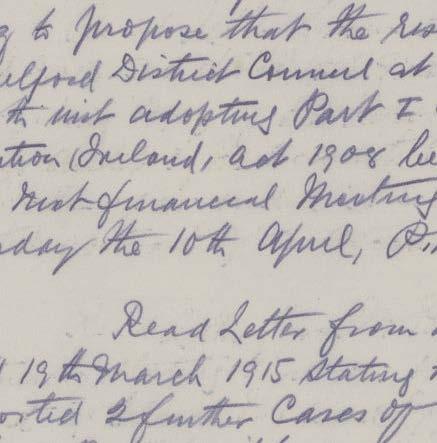 g to propose that the res
elford District Council at
th inst adopting Part I
ation (Ireland, act 1908 be
next financial Meeting
sday the 10th April, P.
Read Letter from
19th March 1915 stating
orted 2 further Cases of